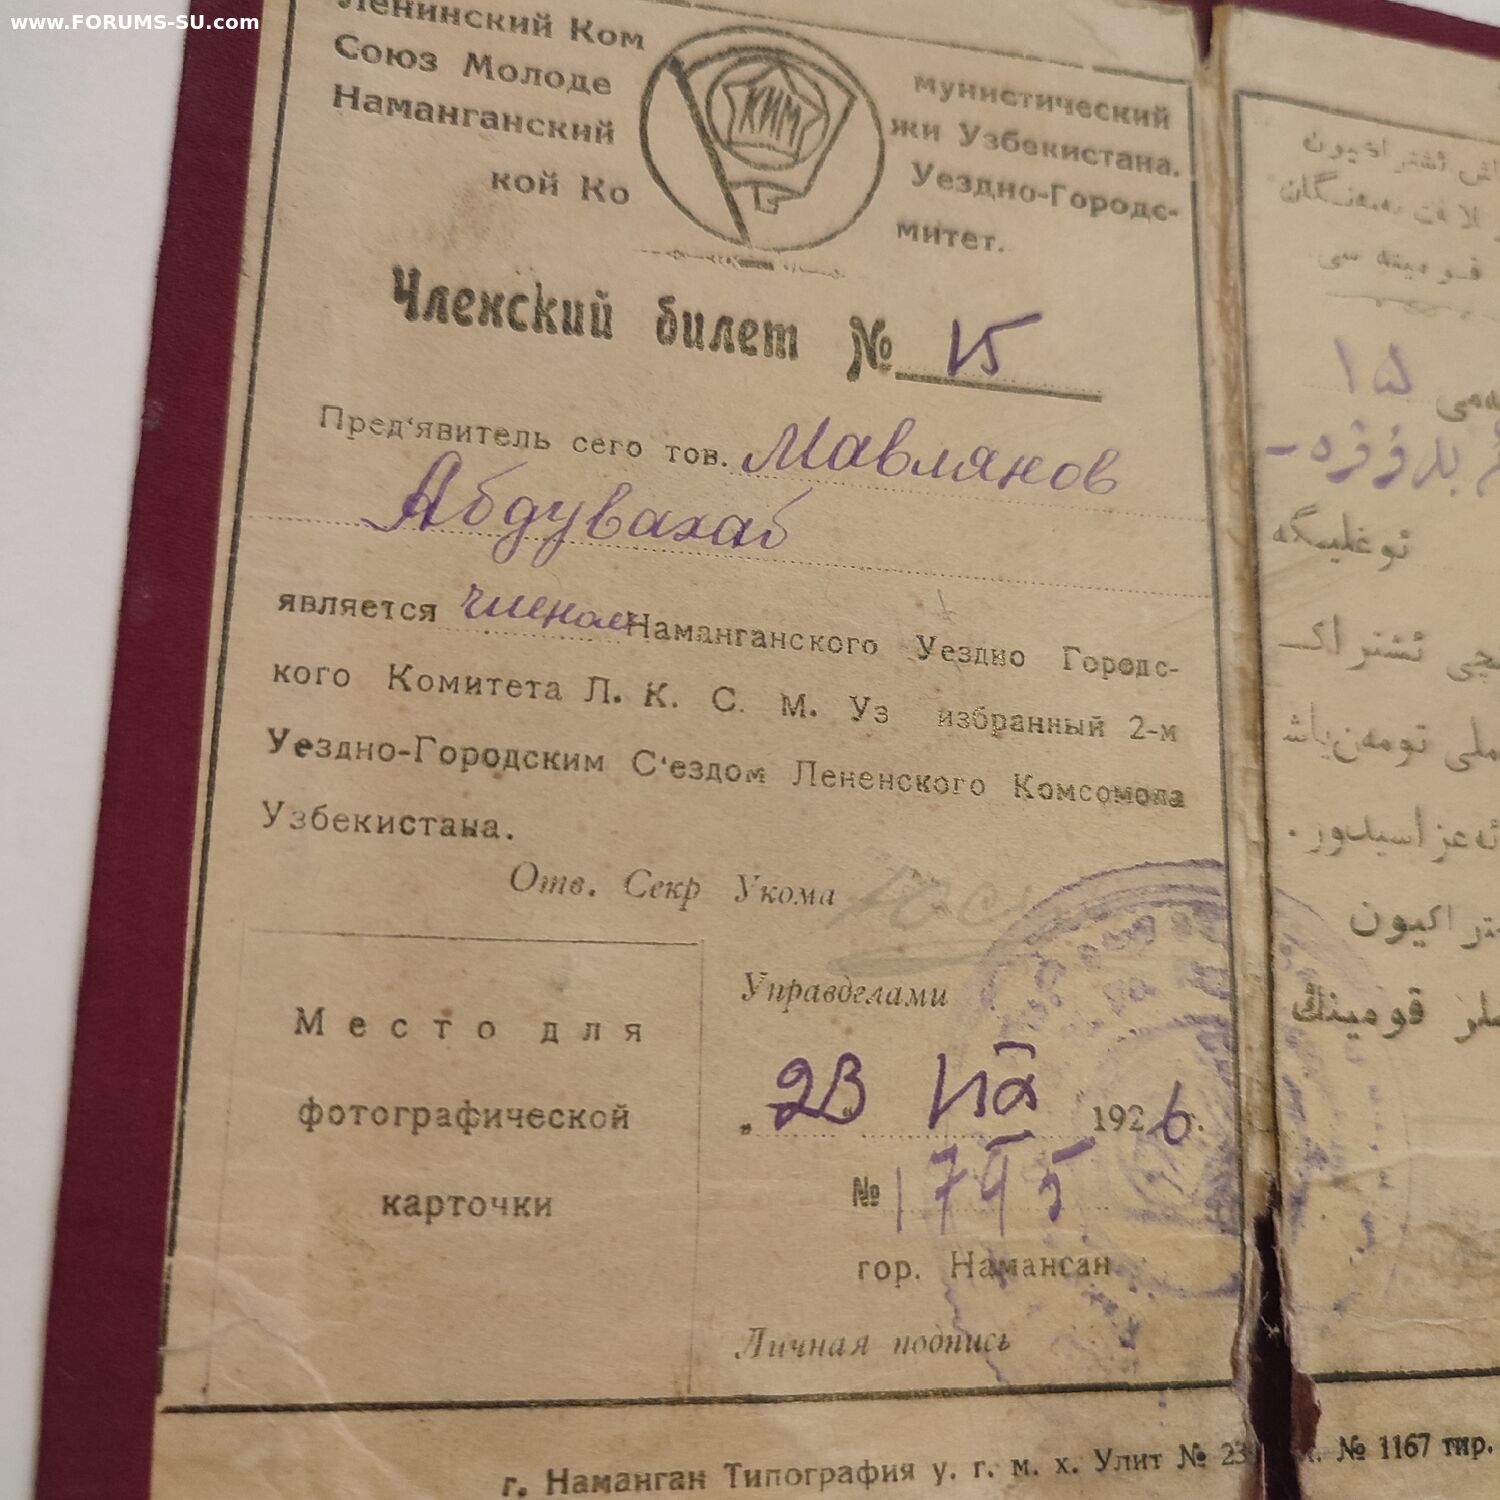 www.FORUMS-SU.com
Ленинский Ком мунистический
Союз Молоде жи Узбекистана.
Наманганский Уездно-Городс-
кой Ко митет.
КИМ
Членский билет № 15
Пред'явитель сего тов. Мавлянов
Абдувахаб
является членом Наманганского Уездно Городс-
кого Комитета Л. К. С. М. Уз избранный 2-м
Уездно-Городским С'ездом Лененского Комсомола
Узбекистана.
Отв. Секр Укома
Управделами
Место для
фотографической
карточки
„23 1926.
№ 1795
гор. Намансан
Личная подпись
г. Наманган Типография у. г. м. х. Улит № № 1167 тир.
ئشتراكيون
قوميته سى
١٥
ئوغليگه
ئشتراك
تومەن باش
ئەعزاسيدور.
قومينىڭ